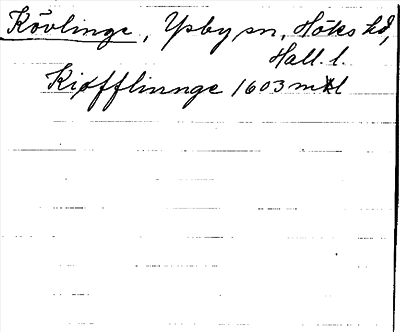 Kövlinge, Ysby sn, Höks hd,
Hall. l.
Kiøfflinnge 1603 mtl